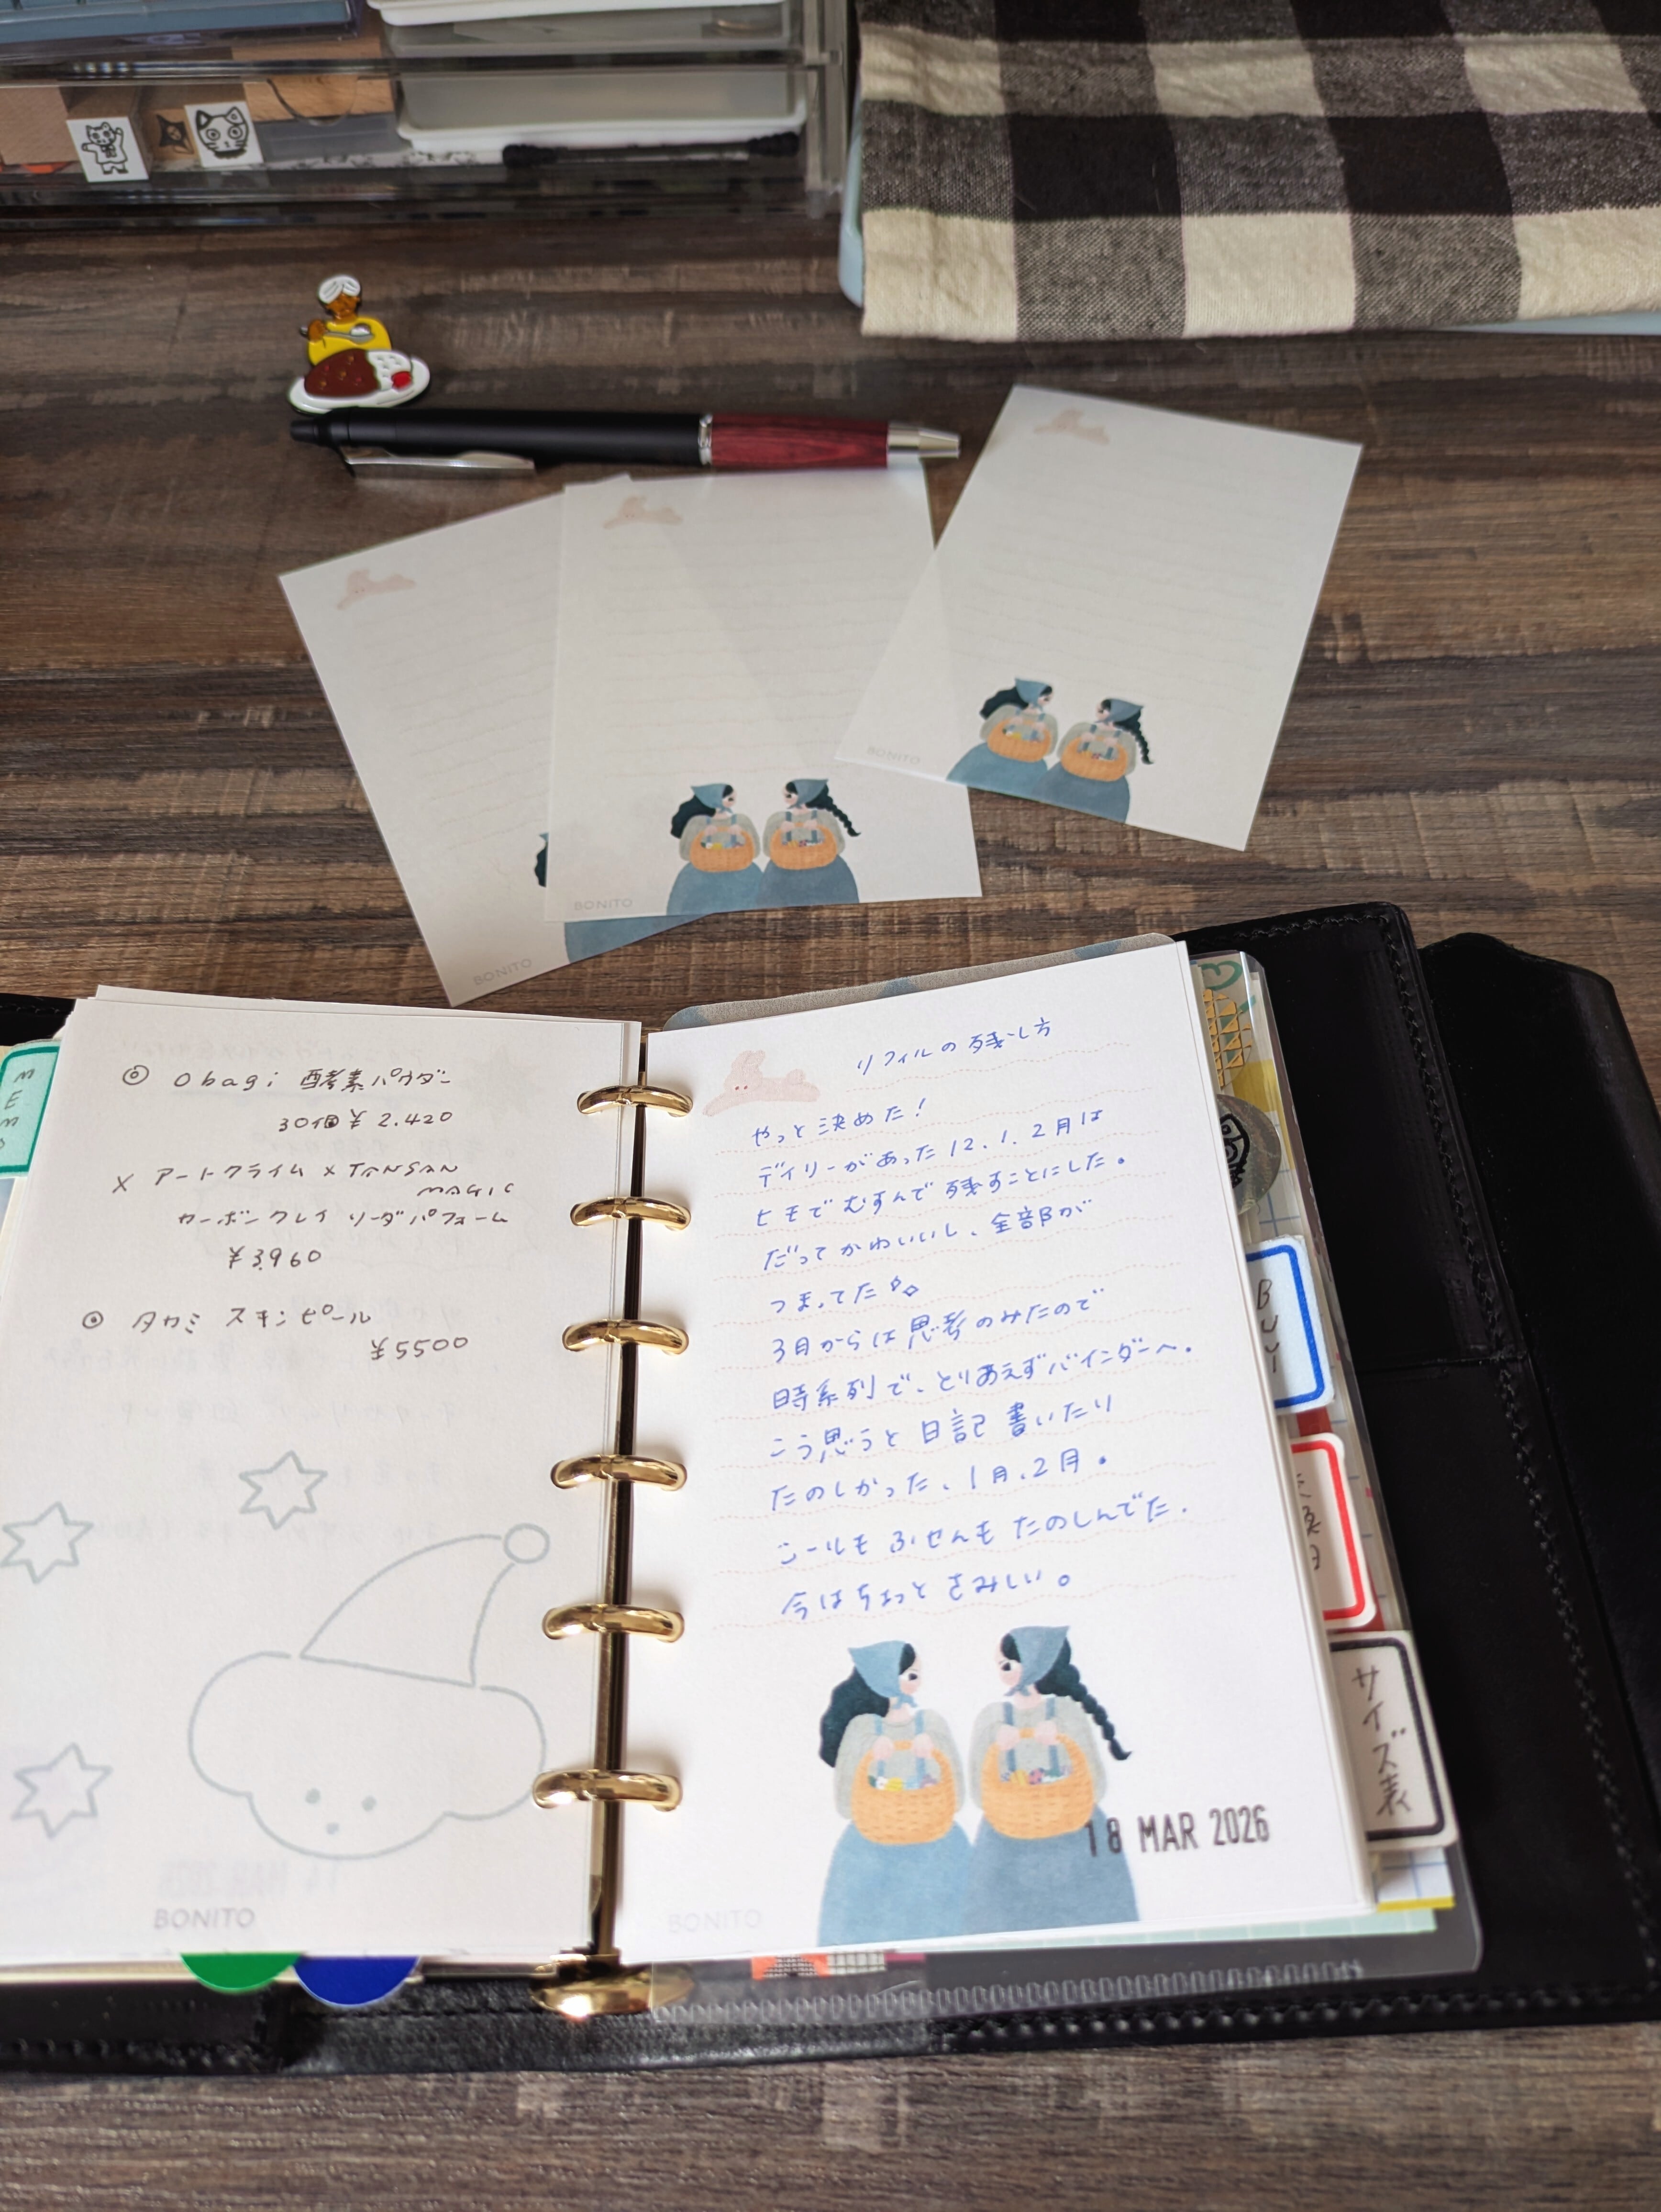 BONITO
BONITO
BONITO
MEMO
◎ Obagi 酵素パウダー
30個 ¥2.420
× アートクライム × TANSAN
MAGIC
カーボンクレイ ソーダパフォーム
¥3.960
◎ タカミ スキンピール
¥5500
BONITO
リフィルの残し方
やっと決めた!
デイリーがあった12.1.2月は
ヒモでむすんで残すことにした。
だってかわいいし、全部が
つまってた
3月からは思考のみたので
時系列で、とりあえずバインダーへ.
こう思うと日記書いたり
たのしかった、1月、2月。
シールもふせんもたのしんでた.
今はちょっとさみしい。
18 MAR 2026
BONITO
BUY
サイズ表